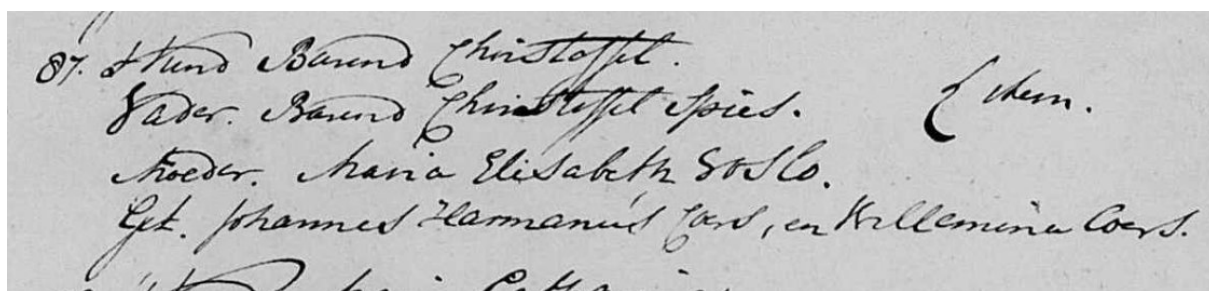 87. t Kind Barend Christoffel.
Vader. Barend Christoffel Spies. Idem.
Moeder. Maria Elisabeth Vosloo.
Get. Johannes Harmanus Coers, en Willemina Coers.